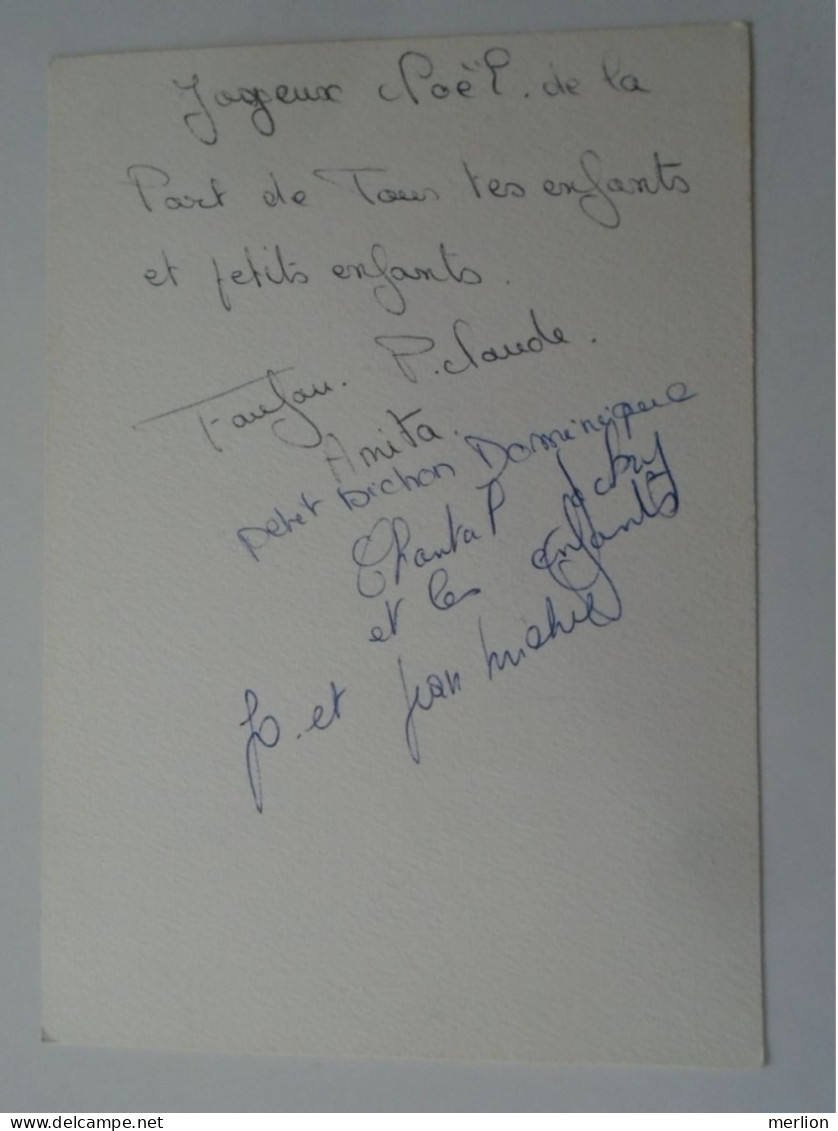 Joyeux Noël. de la
Part de Tous tes enfants
et petits enfants.
Fanfan. P. Claude.
Anita.
petit bichon Dominique
Chantal
et les enfants
Jo. et Jean Michel
merlion